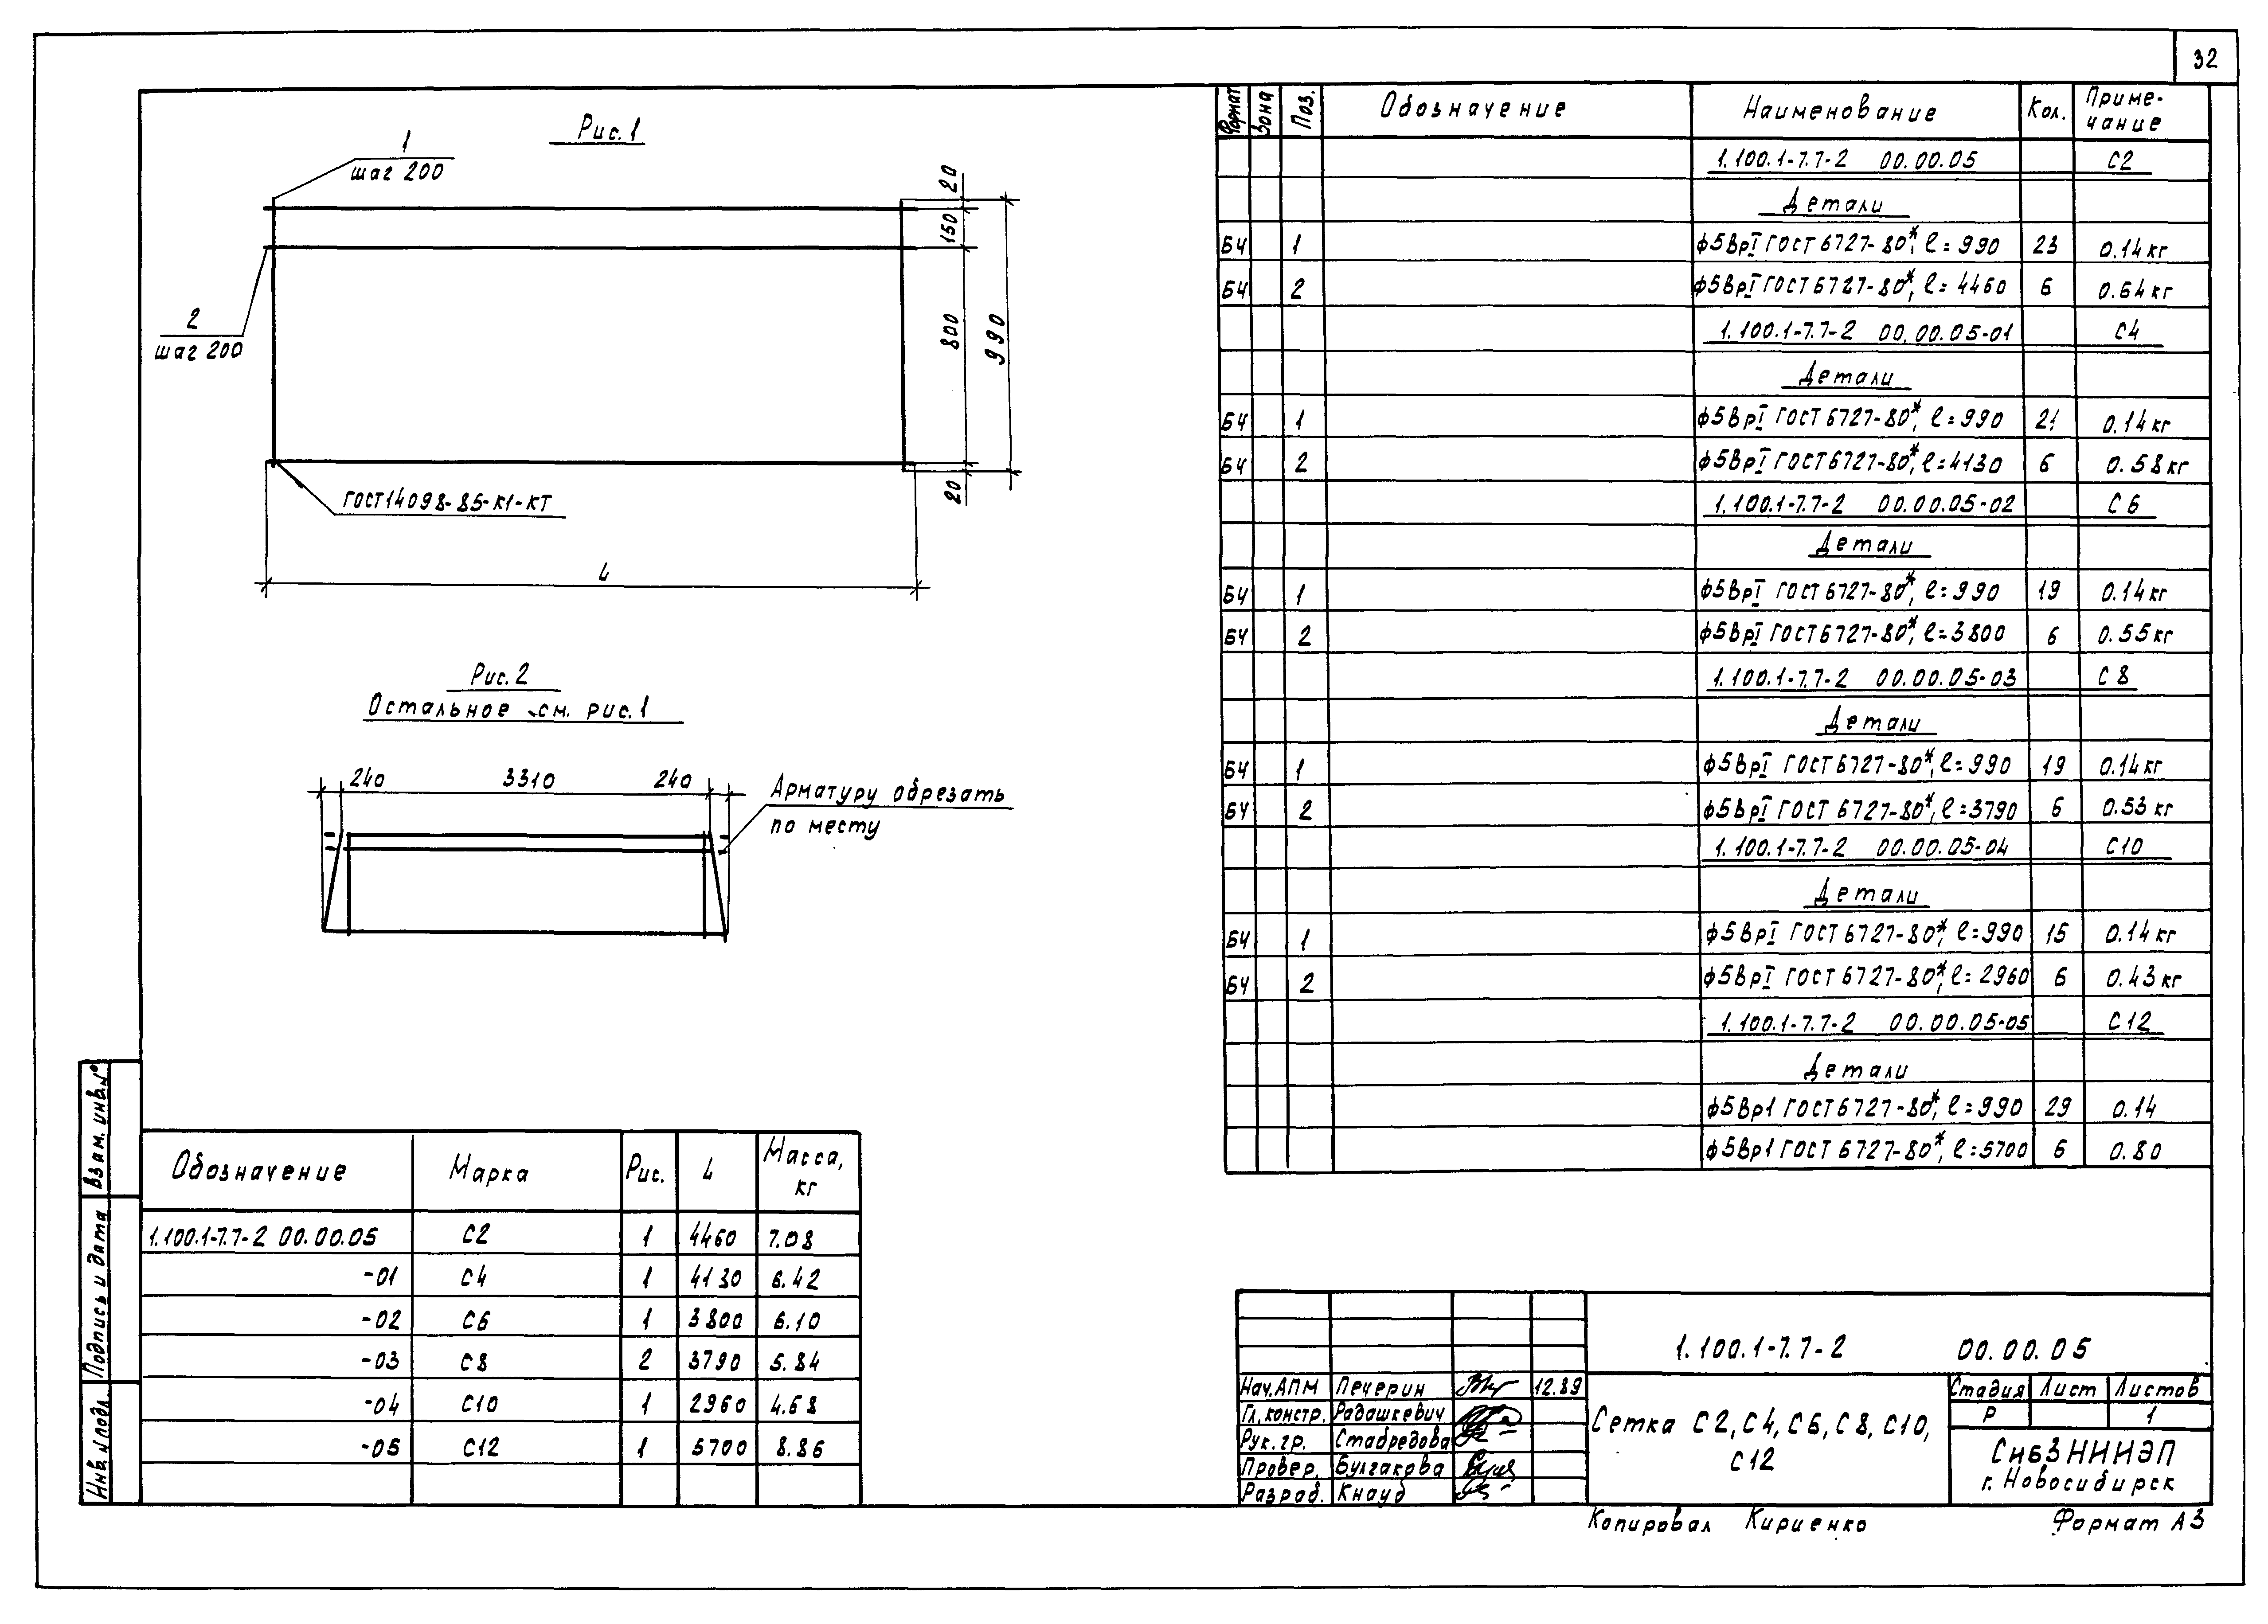 32
Рис. 1
1
шаг 200
2
шаг 200
20
150
800
990
20
ГОСТ 14098-85-К1-КТ
L
Рис. 2
Остальное см. рис. 1
240 3310 240
Арматуру обрезать
по месту
Формат Зона Поз. Обозначение Наименование Кол. Приме-
чание
1.100.1-7.7-2 00.00.05 С2
Детали
БЧ 1 ф5ВрI ГОСТ 6727-80*, l=990 23 0.14 кг
БЧ 2 ф5ВрI ГОСТ 6727-80*, l=4460 6 0.64 кг
1.100.1-7.7-2 00.00.05-01 С4
Детали
БЧ 1 ф5ВрI ГОСТ 6727-80*, l=990 21 0.14 кг
БЧ 2 ф5ВрI ГОСТ 6727-80*, l=4130 6 0.58 кг
1.100.1-7.7-2 00.00.05-02 С6
Детали
БЧ 1 ф5ВрI ГОСТ 6727-80*, l=990 19 0.14 кг
БЧ 2 ф5ВрI ГОСТ 6727-80*, l=3800 6 0.55 кг
1.100.1-7.7-2 00.00.05-03 С8
Детали
БЧ 1 ф5ВрI ГОСТ 6727-80*, l=990 19 0.14 кг
БЧ 2 ф5ВрI ГОСТ 6727-80*, l=3790 6 0.53 кг
1.100.1-7.7-2 00.00.05-04 С10
Детали
БЧ 1 ф5ВрI ГОСТ 6727-80*, l=990 15 0.14 кг
БЧ 2 ф5ВрI ГОСТ 6727-80*, l=2960 6 0.43 кг
1.100.1-7.7-2 00.00.05-05 С12
Детали
ф5Вр1 ГОСТ 6727-80*, l=990 29 0.14
ф5Вр1 ГОСТ 6727-80*, l=5700 6 0.80
Обозначение Марка Рис. L Масса,
кг
1.100.1-7.7-2 00.00.05 С2 1 4460 7.08
-01 С4 1 4130 6.42
-02 С6 1 3800 6.10
-03 С8 2 3790 5.84
-04 С10 1 2960 4.68
-05 С12 1 5700 8.86
Взам. инв. №
Подпись и дата
Инв. № подл.
1.100.1-7.7-2 00.00.05
Нач. АПМ Печерин 12.89
Гл. констр. Радашкевич
Рук. гр. Стабредова
Провер. Булгакова
Разраб. Кнауб
Сетка С2, С4, С6, С8, С10,
С12
Стадия Лист Листов
Р 1
СибЗНИИЭП
г. Новосибирск
Копировал Кириенко Формат А3